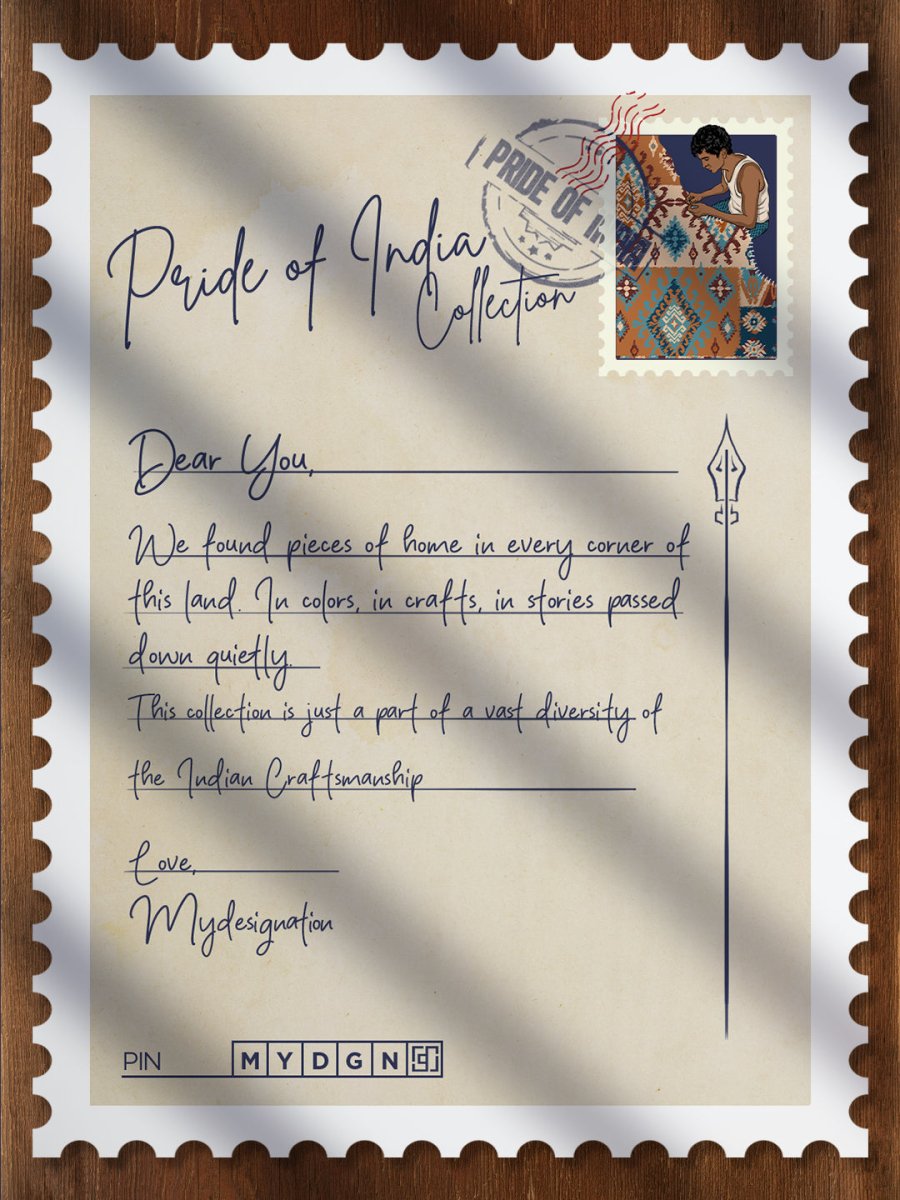 PRIDE OF
Pride of India
Collection
Dear You,
We found pieces of home in every corner of
this land. In colors, in crafts, in stories passed
down quietly.
This collection is just a part of a vast diversity of
the Indian Craftsmanship
Love,
Mydesignation
PIN MYDGN